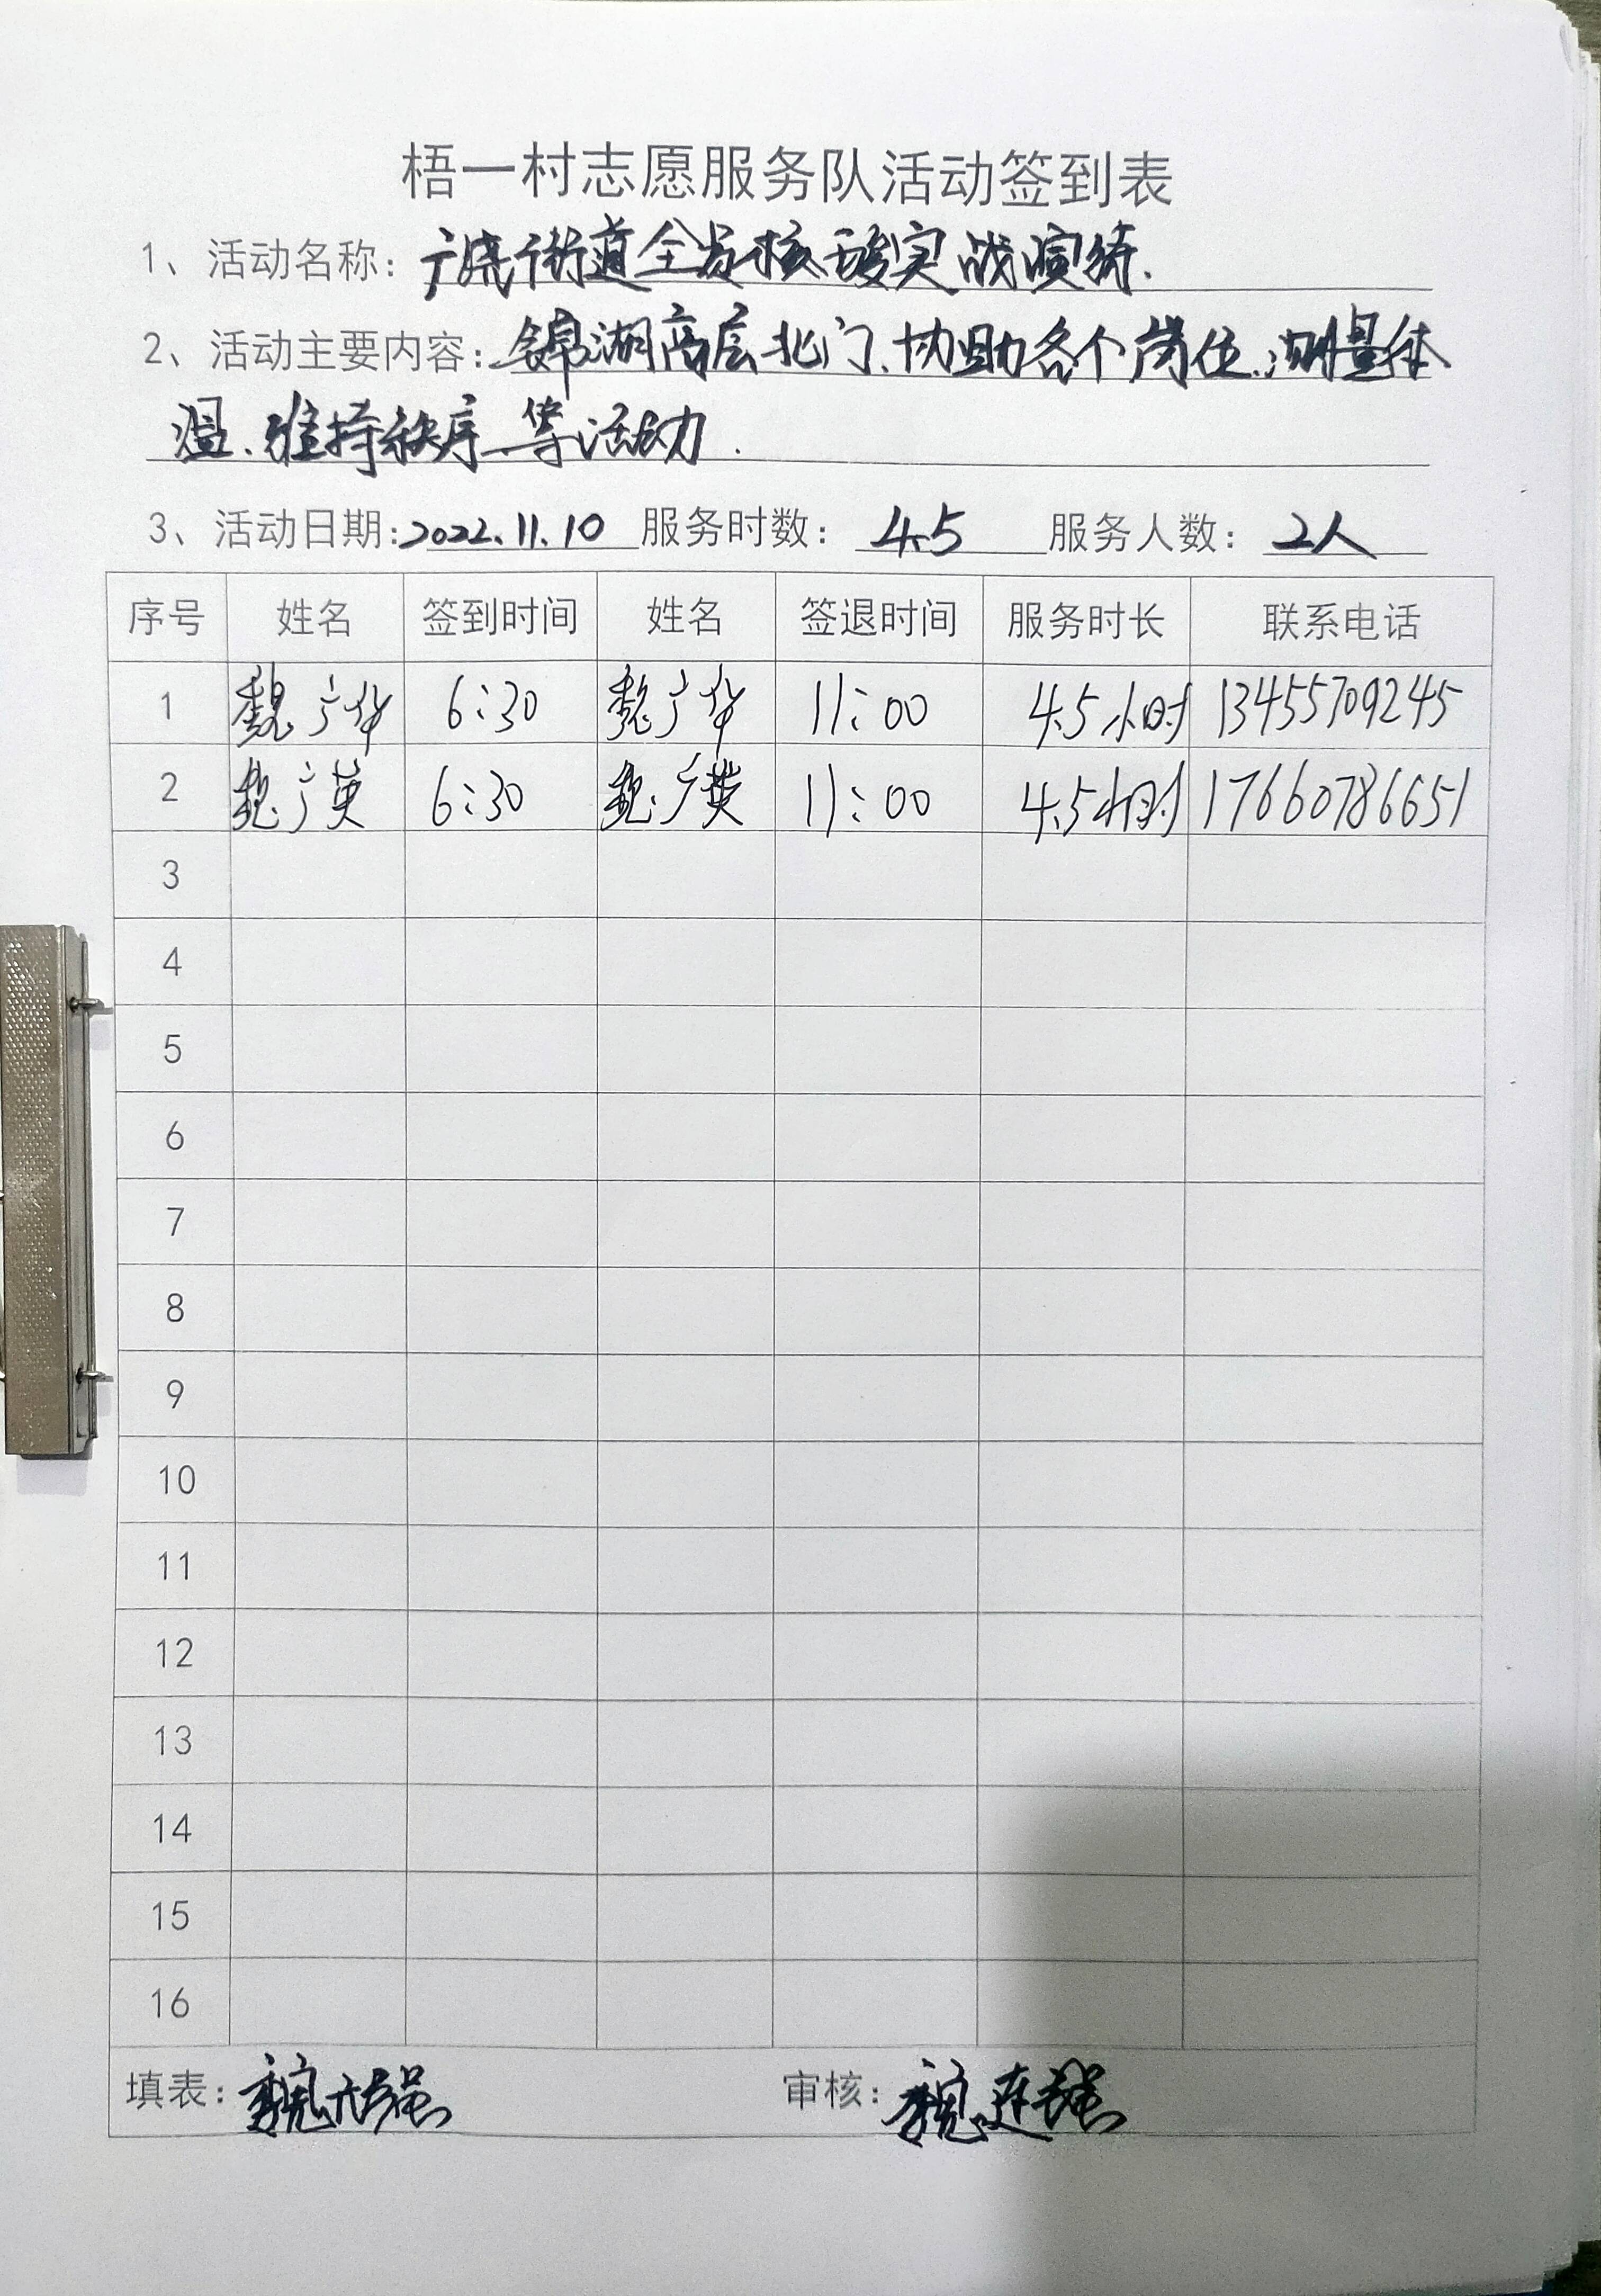 梧一村志愿服务队活动签到表
1、活动名称：广饶街道全员核酸实战演练.
2、活动主要内容：锦湖高层北门、协助各个岗位、测量体
温、维持秩序等活动.
3、活动日期：2022.11.10 服务时数：4.5 服务人数：2人
序号 姓名 签到时间 姓名 签退时间 服务时长 联系电话
1 魏广华 6:30 魏广华 11:00 4.5小时 13455709245
2 魏广英 6:30 魏广英 11:00 4.5小时 17660786651
3
4
5
6
7
8
9
10
11
12
13
14
15
16
填表：魏 强 审核：魏连强